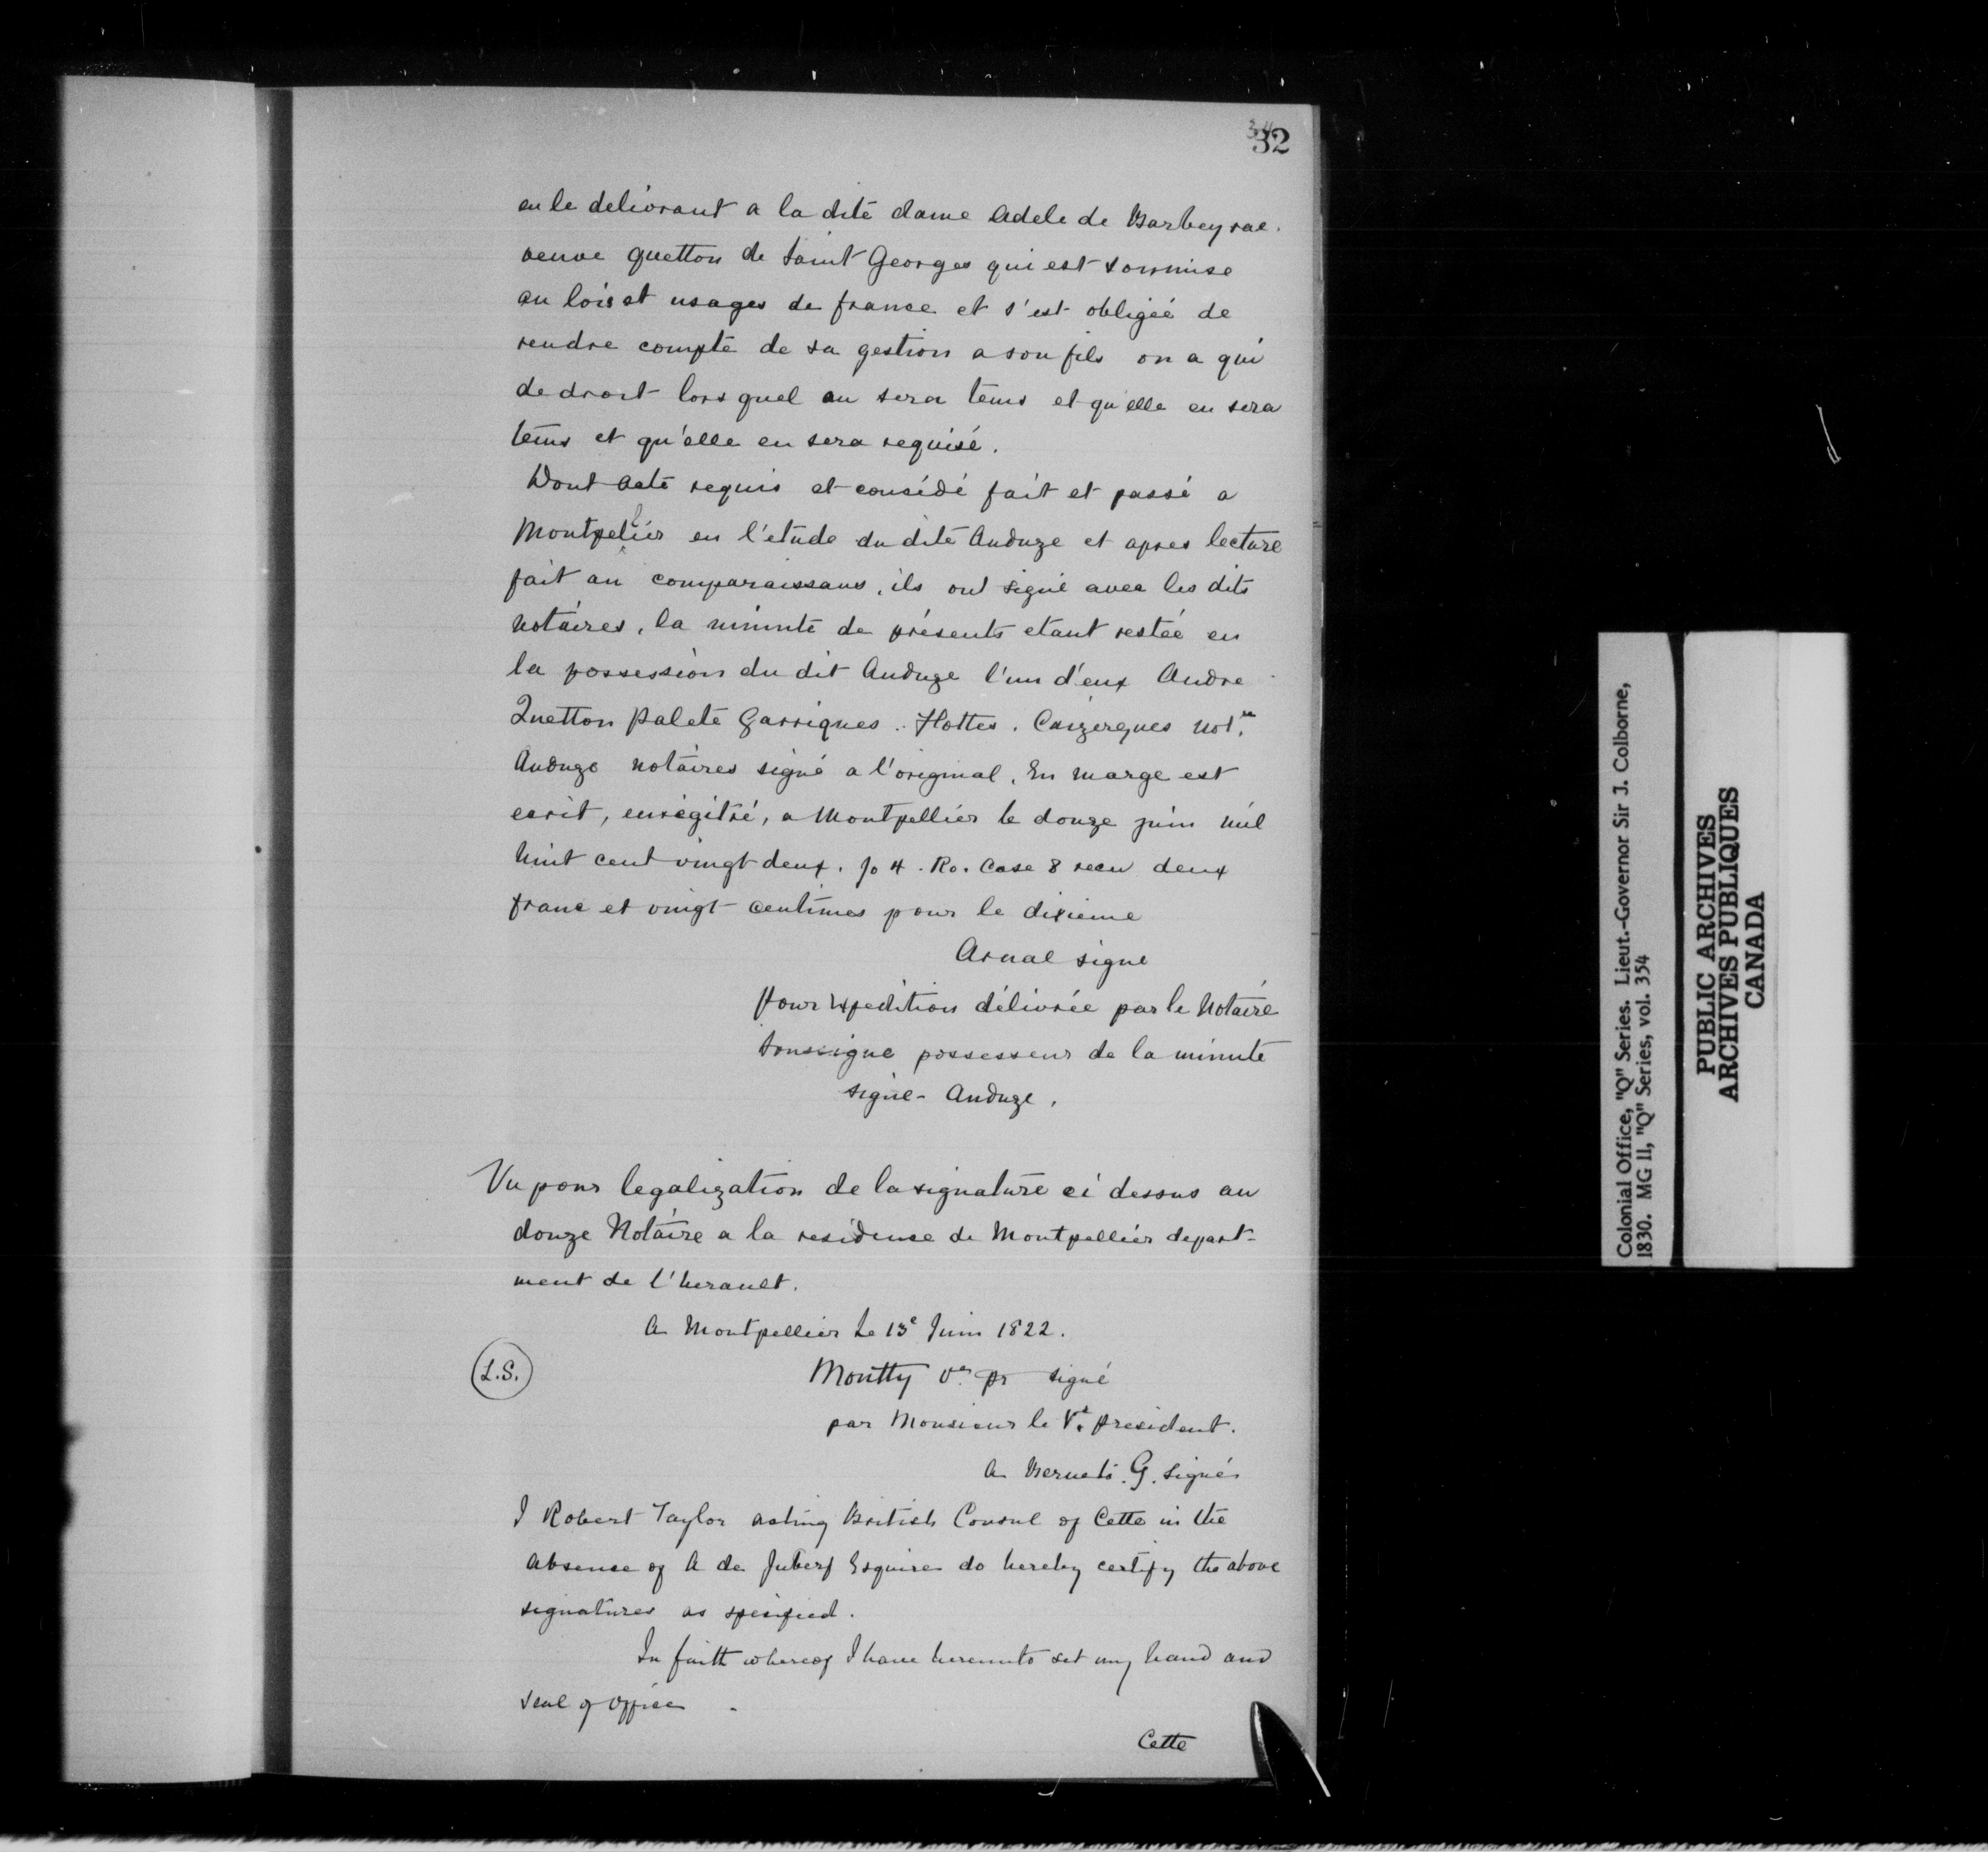 32
en le delivrant a la dite dame Adele de Barbeyrac.
veuve Quetton de Saint Georges qui est soumise
au lois et usages de france et s'est obligée de
rendre compte de sa gestion a son fils ou a qui
de droit lors quel en sera tems et qu'elle en sera
tems et qu'elle en sera requisé.
Dont Acte requis et consédé fait et passé a
Montpellier en l'etude du dite Anduze et apres lecture
fait au comparaissans, ils ont signé avec les dits
Notaires, la minute de présents etant restée en
la possession du dit Anduze l'un d'eux Andre
Quetton Palete Garrigues. Hottes. Caizergues Not.re
Anduze Notaires signé a l'original, En marge est
ecrit, enrégitré, a Montpellier le douze juin mil
huit cent vingt deux. fo 4. Ro. Case 8 recu deux
franc et vingt centimes pour le dixieme
Arnal signe
Pour Expedition délivrée par le Notaire
Soussigne possesseur de la minute
signé - Anduze.
Vu pour legalization de la signature ci dessus au
douze Notaire a la residense de Montpellier depart-
ment de l'herault.
A Montpellier Le 13e Juin 1822.
(L.S.)
Montty Ve pr signé
par Monsieur le Vt. president.
A G. Signés
I Robert Taylor acting British Consul of Cette in the
absence of A de Esquire do hereby certify the above
signatures as spesified.
In faith whereof I have hereunto set my hand and
seal of office.
Cette
Colonial Office, "Q" Series. Lieut.-Governor Sir J. Colborne,
1830. MG 11, "Q" Series, vol. 354
PUBLIC ARCHIVES
ARCHIVES PUBLIQUES
CANADA